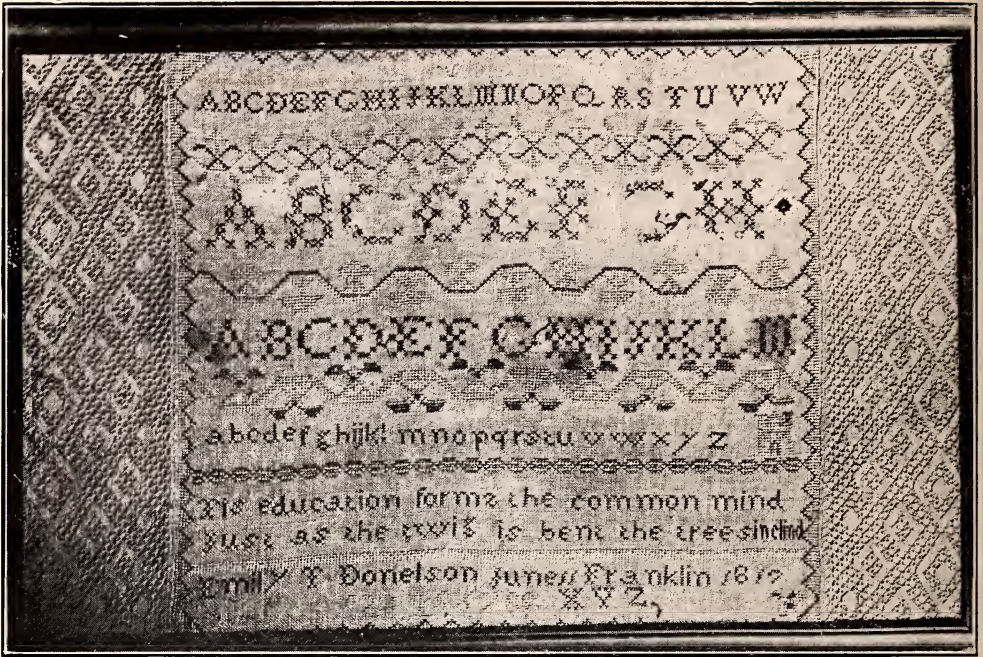 ABCDEFGHIJKLMNOPQRSTUVW
ABCDEF GH
ABCDEFGHIJKLM
abcdefghijklmnopqrstuvwxyz
Tis education forms the common mind
Just as the twig is bent the trees inclind
Emily T Donelson June Franklin
XYZ